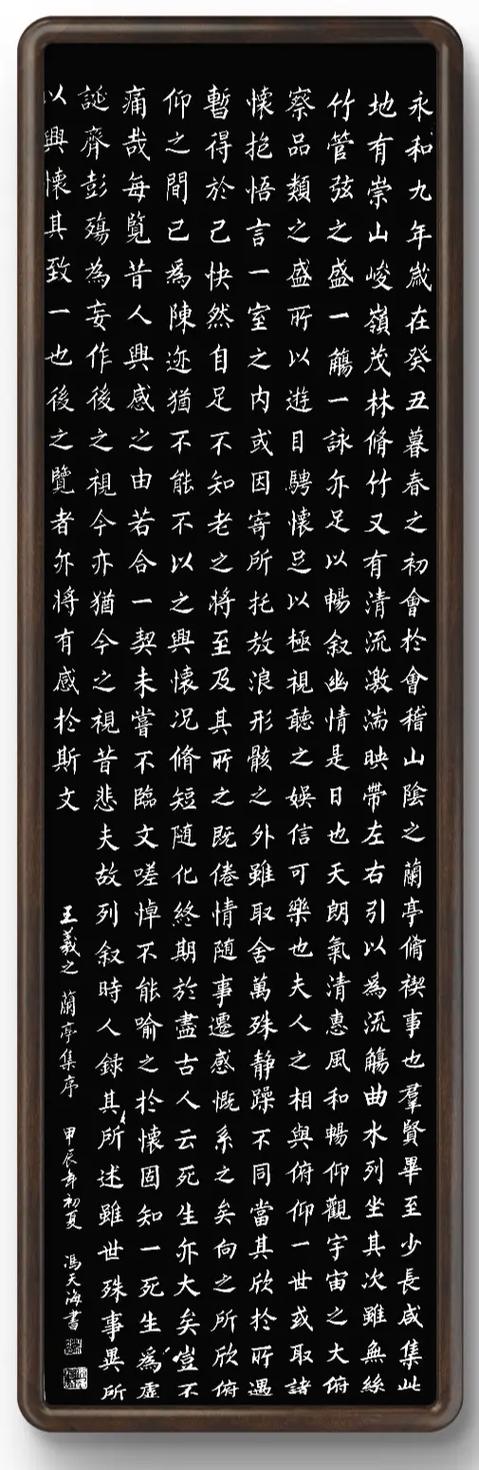 永和九年歲在癸丑暮春之初會於會稽山陰之蘭亭脩禊事也羣賢畢至少長咸集此
地有崇山峻嶺茂林脩竹又有清流激湍映帶左右引以為流觴曲水列坐其次雖無絲
竹管弦之盛一觴一詠亦足以暢叙幽情是日也天朗氣清惠風和暢仰觀宇宙之大俯
察品類之盛所以遊目騁懷足以極視聽之娛信可樂也夫人之相與俯仰一世或取諸
懷抱悟言一室之内或因寄所托放浪形骸之外雖取舍萬殊静躁不同當其欣於所遇
暫得於己快然自足不知老之將至及其所之既倦情随事遷感慨系之矣向之所欣俯
仰之間已為陳迹猶不能不以之興懷况脩短随化終期於盡古人云死生亦大矣豈不
痛哉每覽昔人興感之由若合一契未嘗不臨文嗟悼不能喻之於懷固知一死生為虛
誕齊彭殤為妄作後之視今亦猶今之視昔悲夫故列叙時人録其所述雖世殊事異所
以興懷其致一也後之覽者亦將有感於斯文
王羲之 蘭亭集序 甲辰年初夏 馮天海書